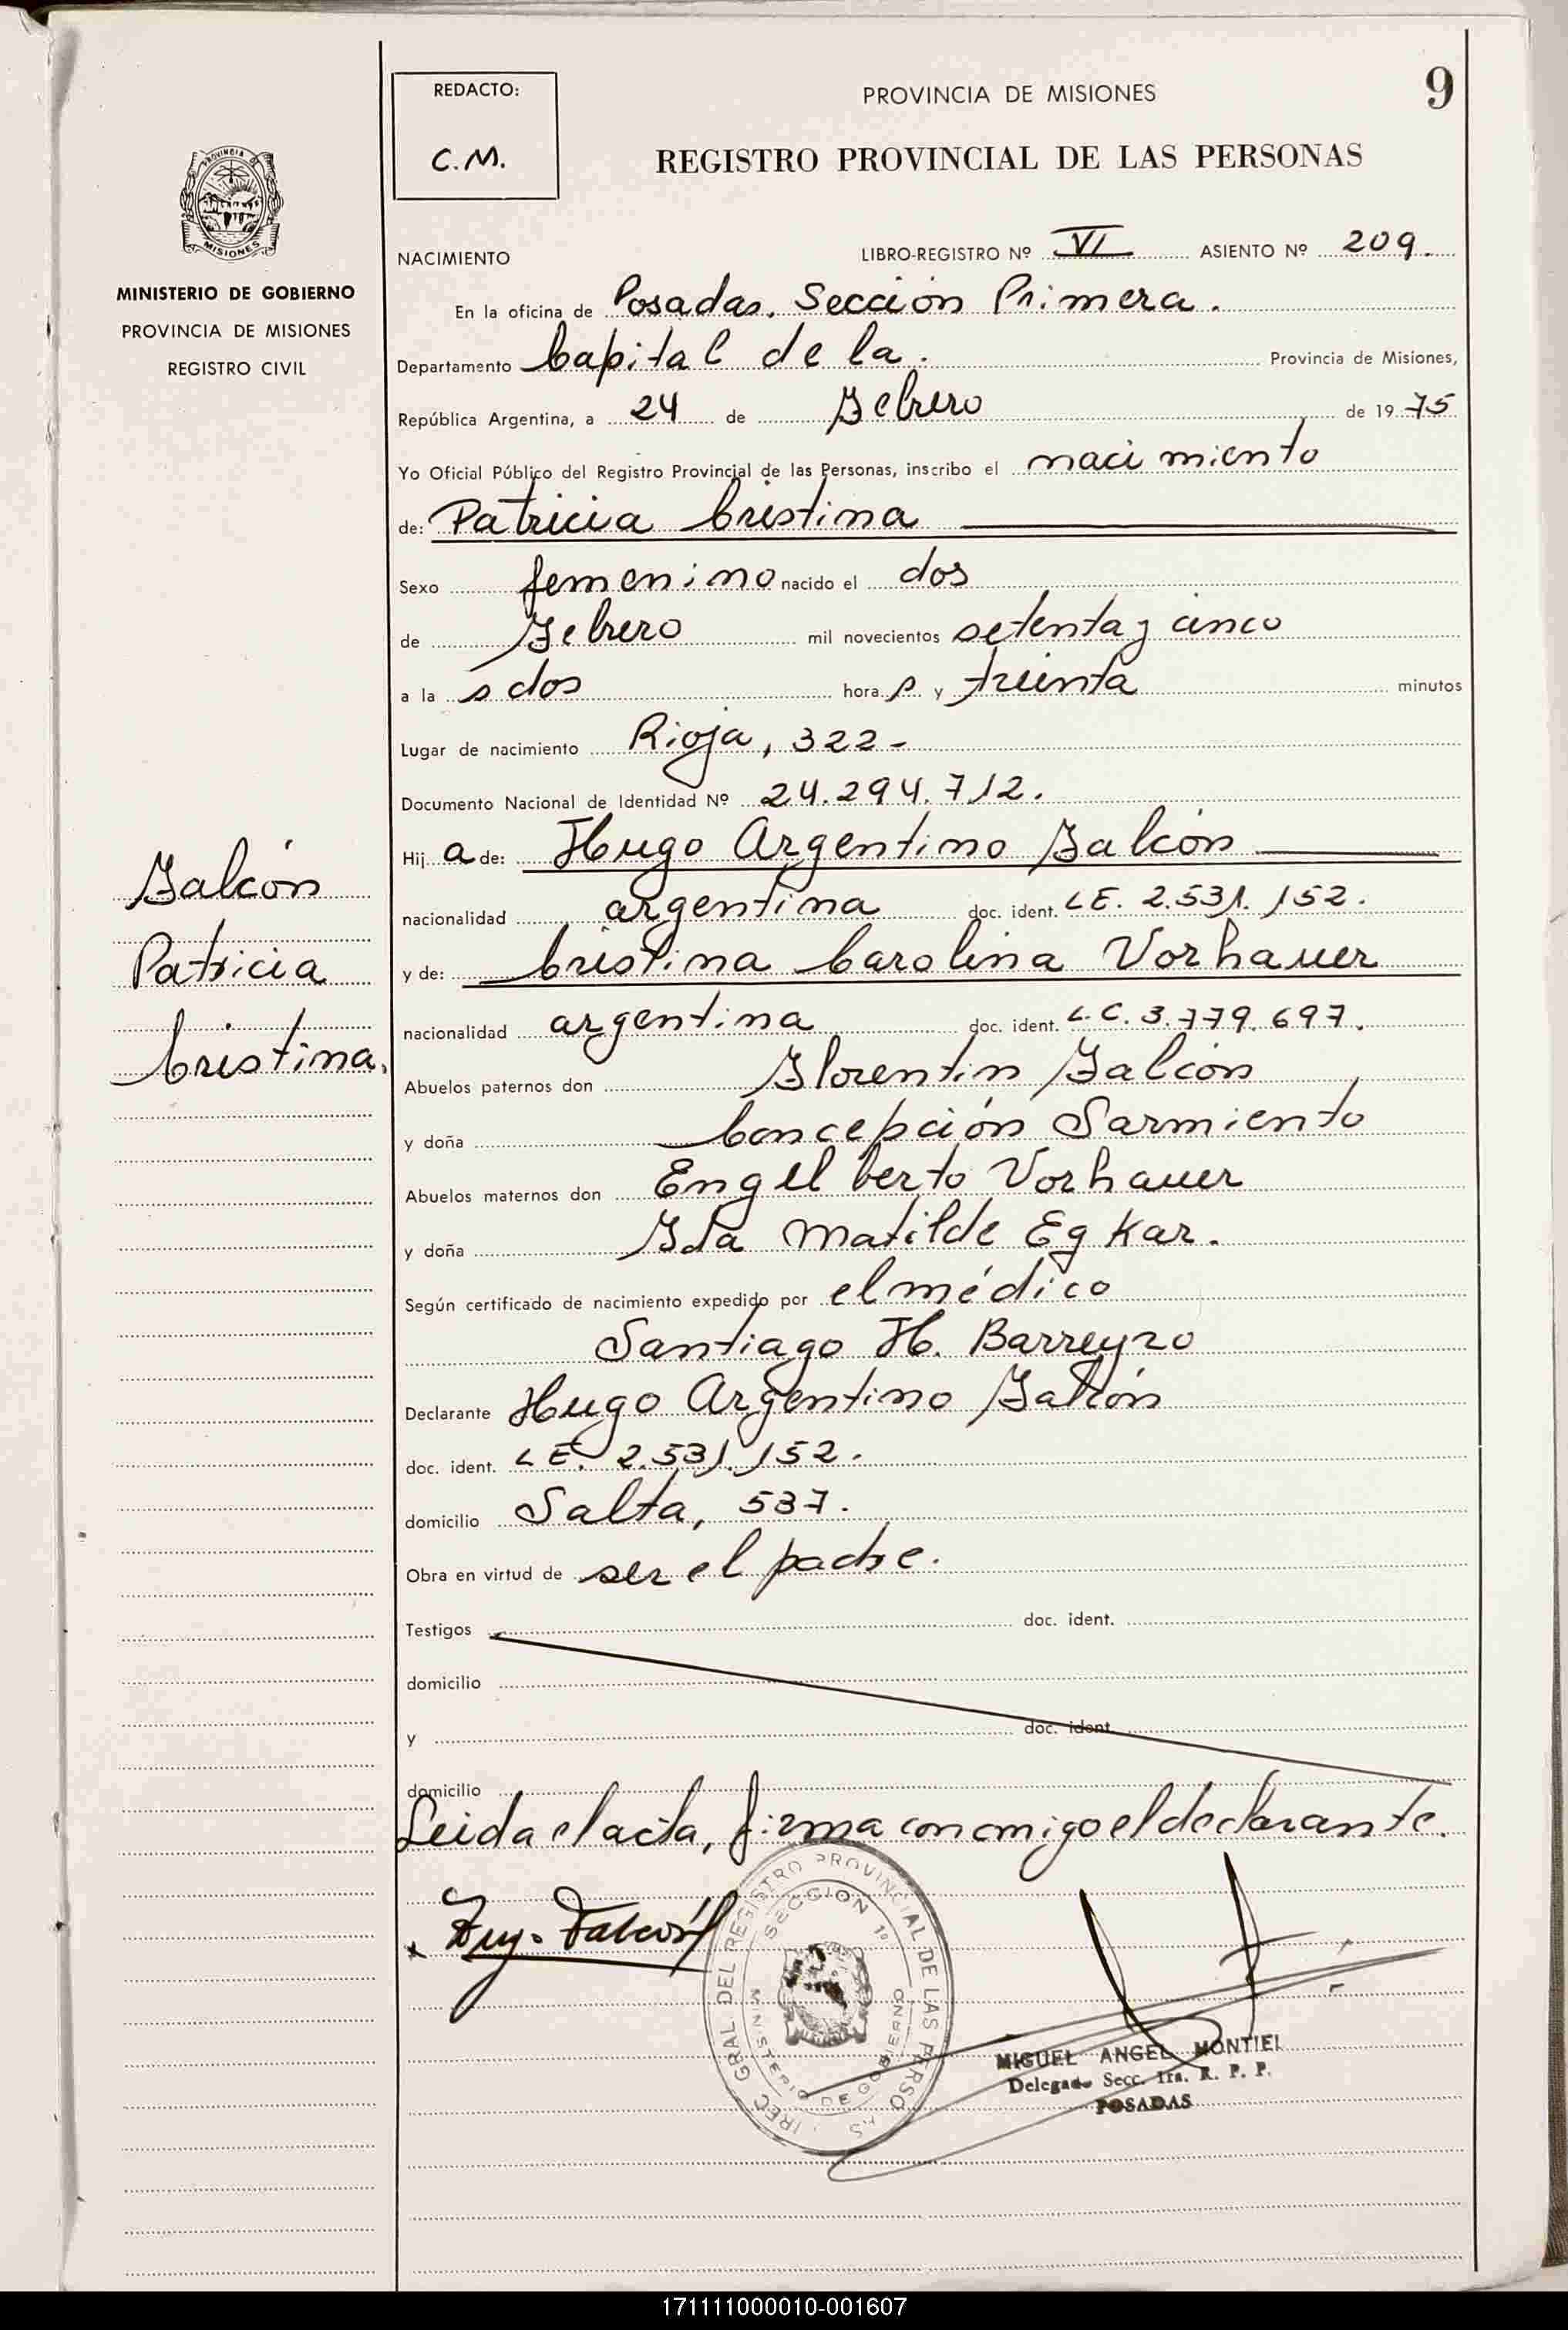 REDACTO:
C.M.
PROVINCIA DE MISIONES
9
REGISTRO PROVINCIAL DE LAS PERSONAS
PROVINCIA DE
MISIONES
MINISTERIO DE GOBIERNO
PROVINCIA DE MISIONES
REGISTRO CIVIL
Falcón
Patricia
Cristina.
NACIMIENTO LIBRO-REGISTRO Nº VI ASIENTO Nº 209.
En la oficina de Posadas. Sección Primera.
Departamento Capital de la. Provincia de Misiones,
República Argentina, a 24 de Febrero de 1975
Yo Oficial Público del Registro Provincial de las Personas, inscribo el nacimiento
de: Patricia Cristina
Sexo femenino nacido el dos
de Febrero mil novecientos setenta y cinco
a la s dos hora s y treinta minutos
Lugar de nacimiento Rioja, 322-
Documento Nacional de Identidad Nº 24.294.712.
Hij a de: Hugo Argentino Falcón
nacionalidad argentina doc. ident. L E. 2.531.152.
y de: Cristina Carolina Vorhauer
nacionalidad argentina doc. ident. L.C. 3.779.697.
Abuelos paternos don Florentín Falcón
y doña Concepción Sarmiento
Abuelos maternos don Engelberto Vorhauer
y doña Ida Matilde Eg Kar.
Según certificado de nacimiento expedido por el médico
Santiago H. Barreyro
Declarante Hugo Argentino Falcón
doc. ident. L E. 2.531.152.
domicilio Salta, 537.
Obra en virtud de ser el padre.
Testigos doc. ident.
domicilio
y doc. ident.
domicilio
Leida el acta, firma conmigo el declarante.
Hug. Falcón
DIREC. GRAL. DEL REGISTRO PROVINCIAL DE LAS PERSONAS
SECCION 1ª
MINISTERIO DE GOBIERNO
MIGUEL ANGEL MONTIEL
Delegado Secc. 1ra. R. P. P.
POSADAS
171111000010-001607